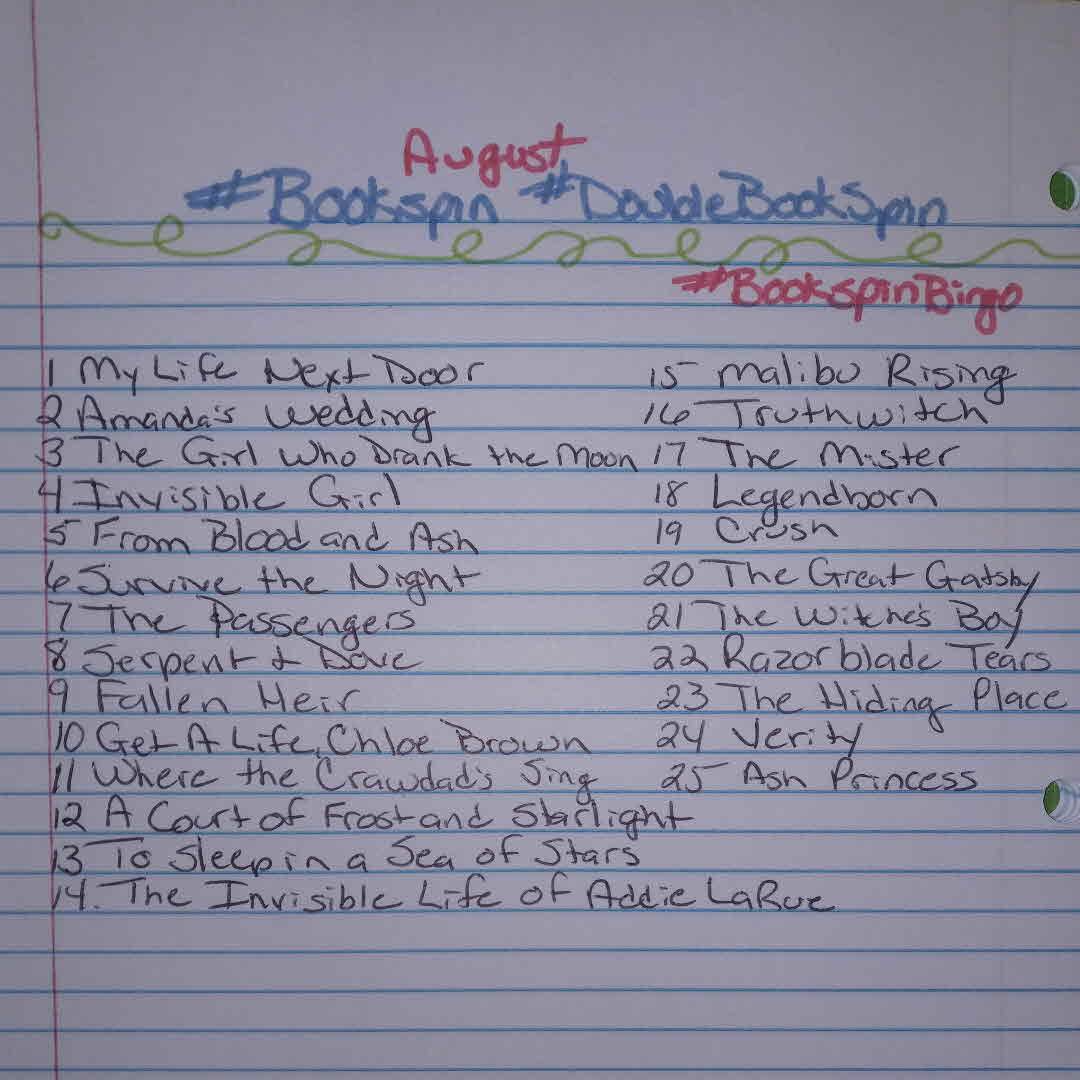 August
#Bookspin #DoubleBookSpin
#BookspinBingo
1 My Life Next Door
2 Amanda's Wedding
3 The Girl Who Drank the Moon
4 Invisible Girl
5 From Blood and Ash
6 Survive the Night
7 The Passengers
8 Serpent & Dove
9 Fallen Heir
10 Get A Life, Chloe Brown
11 Where the Crawdad's Sing
12 A Court of Frost and Starlight
13 To Sleep in a Sea of Stars
14. The Invisible Life of Addie LaRue
15 Malibu Rising
16 Truthwitch
17 The Mister
18 Legendborn
19 Crush
20 The Great Gatsby
21 The Witche's Boy
22 Razorblade Tears
23 The Hiding Place
24 Verity
25 Ash Princess